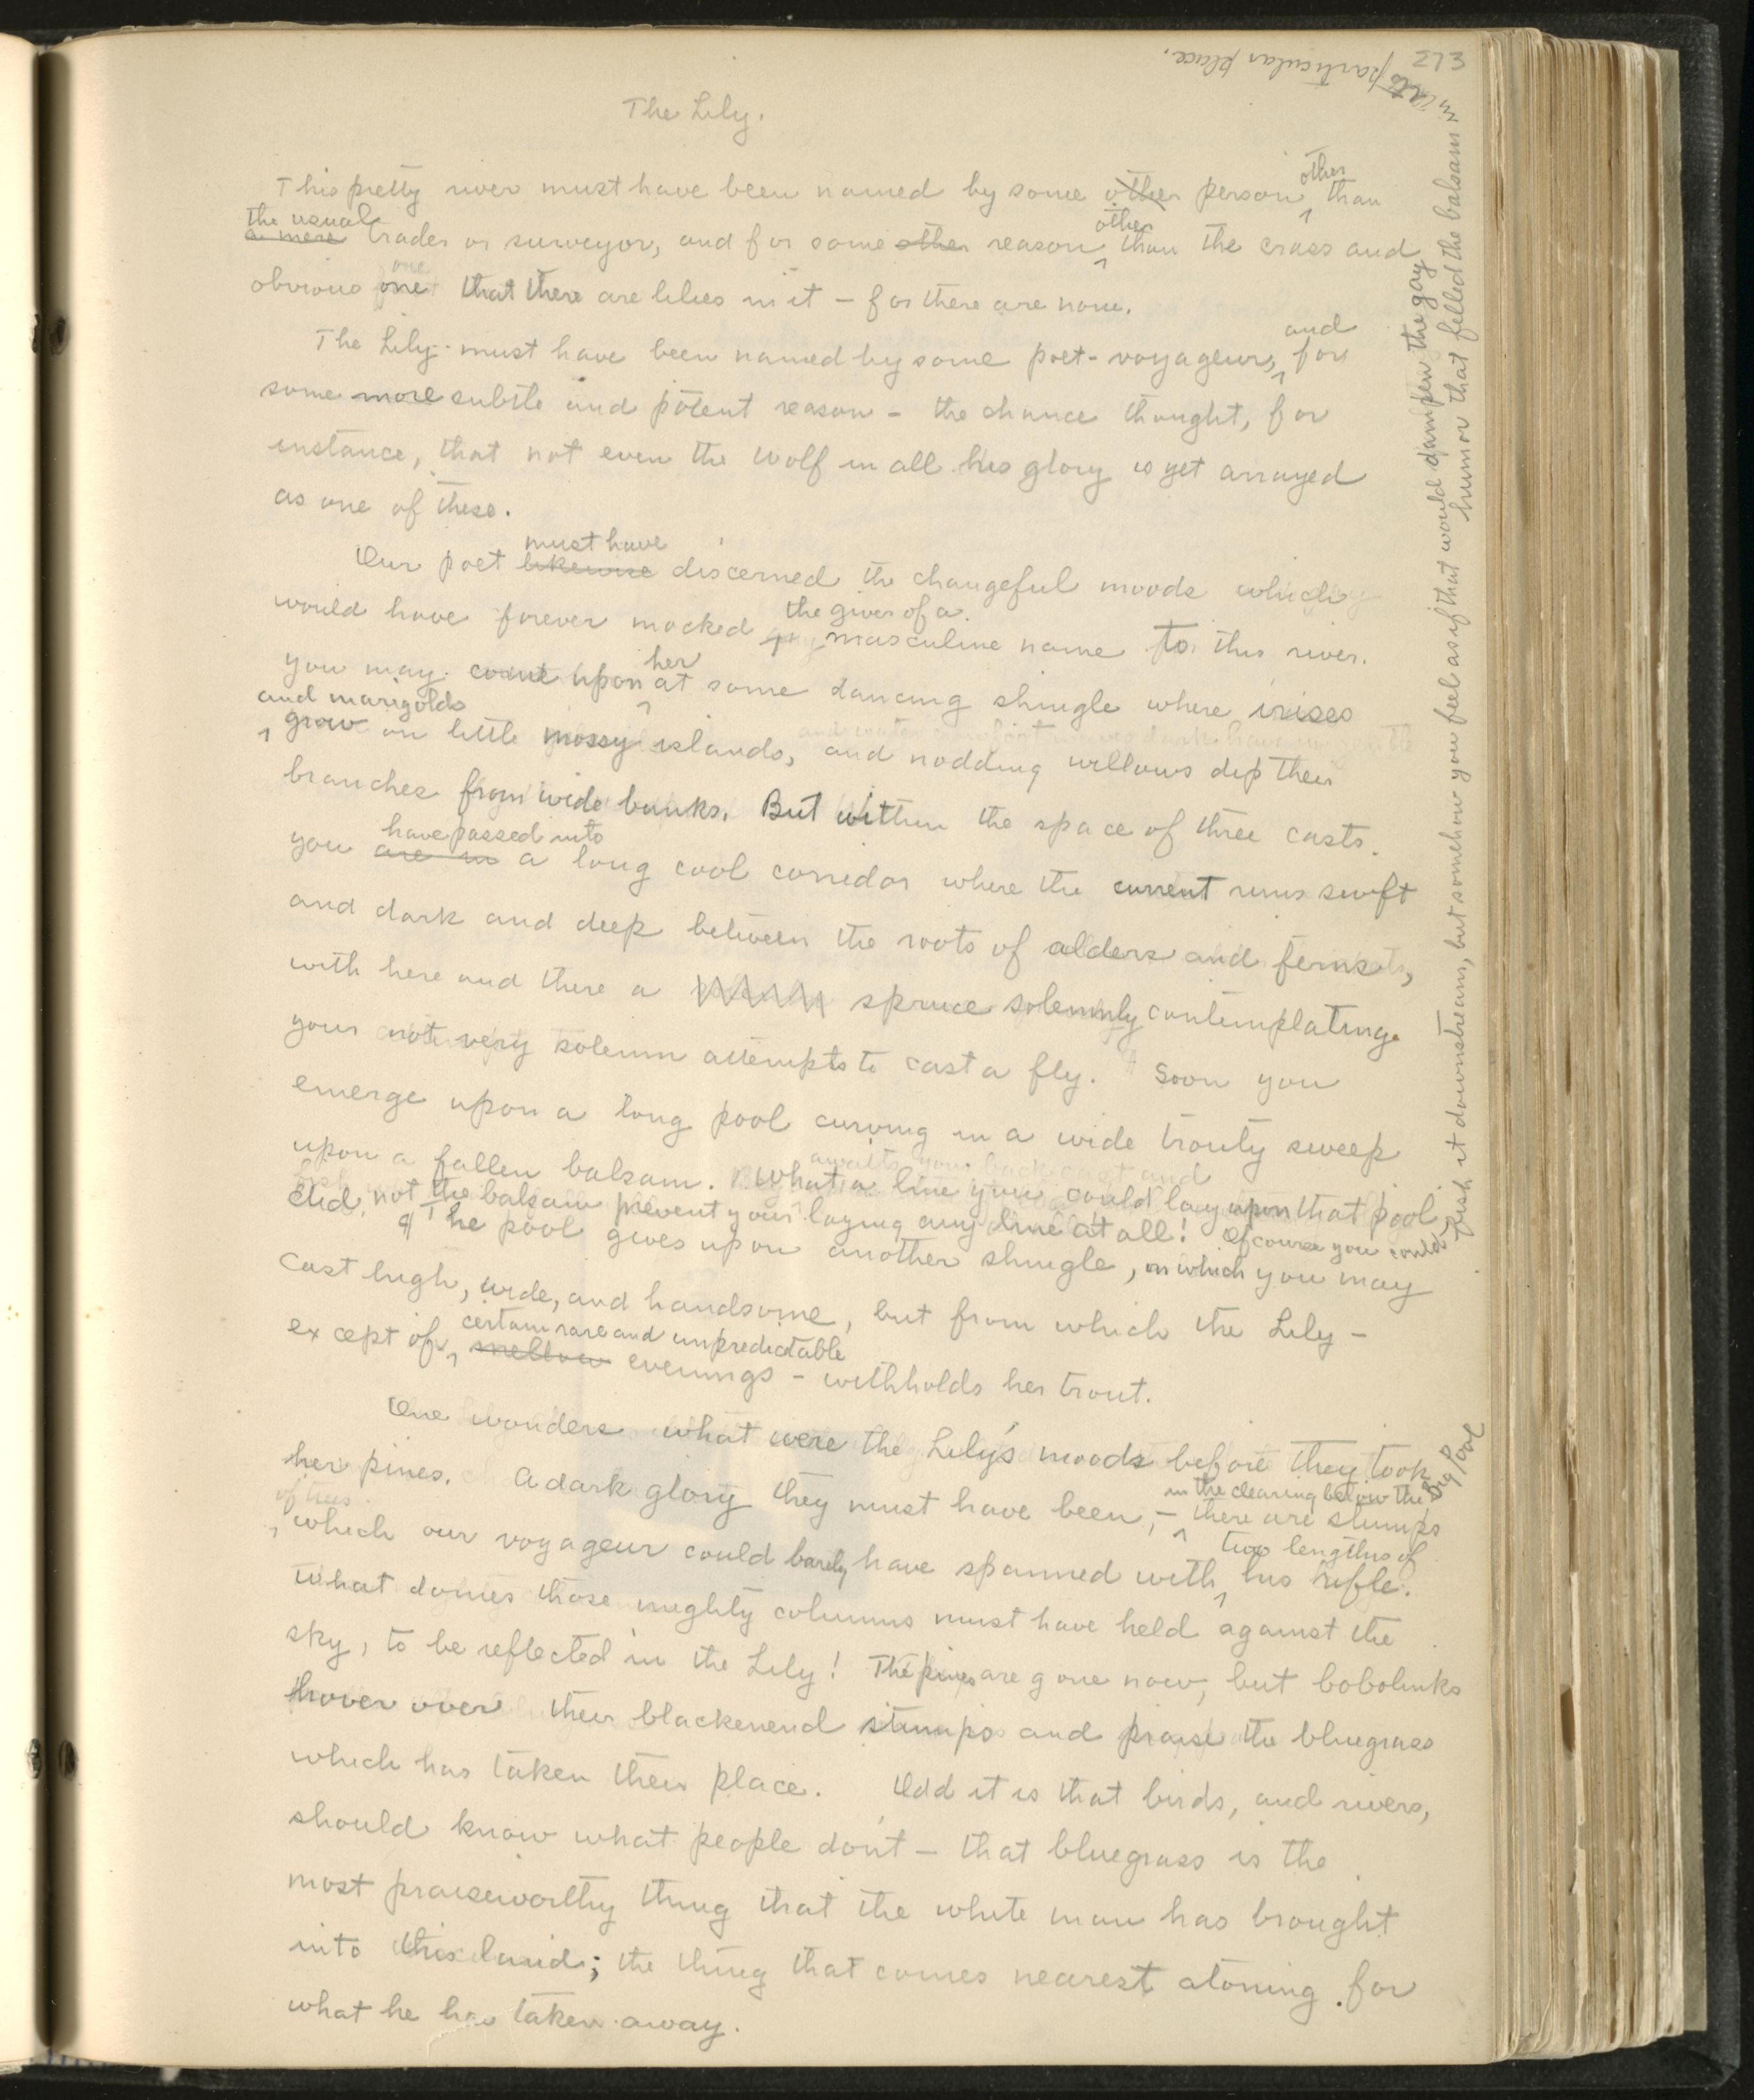 273
The Lily.
other
This pretty river must have been named by some other person than
the usual other
a mere trader or surveyor, and for some other reason than the crass and
one
obvious one that there are lilies in it – for there are none.
and
The Lily must have been named by some poet-voyageur, for
some more subtle and potent reason – the chance thought, for
instance, that not even the Wolf in all his glory is yet arrayed
as one of these.
must have
Our poet likewise discerned the changeful moods which
the giver of a
would have forever mocked any masculine name to this river.
her
You may come upon at some dancing shingle where irises
and marigolds
grow on little mossy islands, and nodding willows dip their
branches from wide banks. But within the space of three casts
have passed into
you are in a long cool corridor where the current runs swift
and dark and deep between the roots of alders and ferns,
with here and there a spruce solemnly contemplating
your not very solemn attempts to cast a fly. Soon you
emerge upon a long pool curving in a wide trouty sweep
awaits your back cast and
upon a fallen balsam. What a line you could lay upon that pool,
did not the balsam prevent your laying any line at all! Of course you could
fish it downstream, but somehow you feel as if that would dampen the gay
humor that filled the balsam
into
particular place.
¶ The pool gives upon another shingle, on which you may
cast high, wide, and handsome, but from which the Lily –
certain rare and unpredictable
except of mellow evenings – withholds her trout.
One wonders what were the Lily's moods before they took
her pines. A dark glory they must have been, – there are stumps
in the clearing below the Big Pool
of trees
which our voyageur could barely have spanned with his rifle.
two lengths of
What domes those mighty columns must have held against the
sky, to be reflected in the Lily! The pines are gone now, but bobolinks
hover over their blackenend stumps and praise the bluegrass
which has taken their place. Odd it is that birds, and rivers,
should know what people don't – that bluegrass is the
most praiseworthy thing that the white man has brought
into this land; the thing that comes nearest atoning for
what he has taken away.